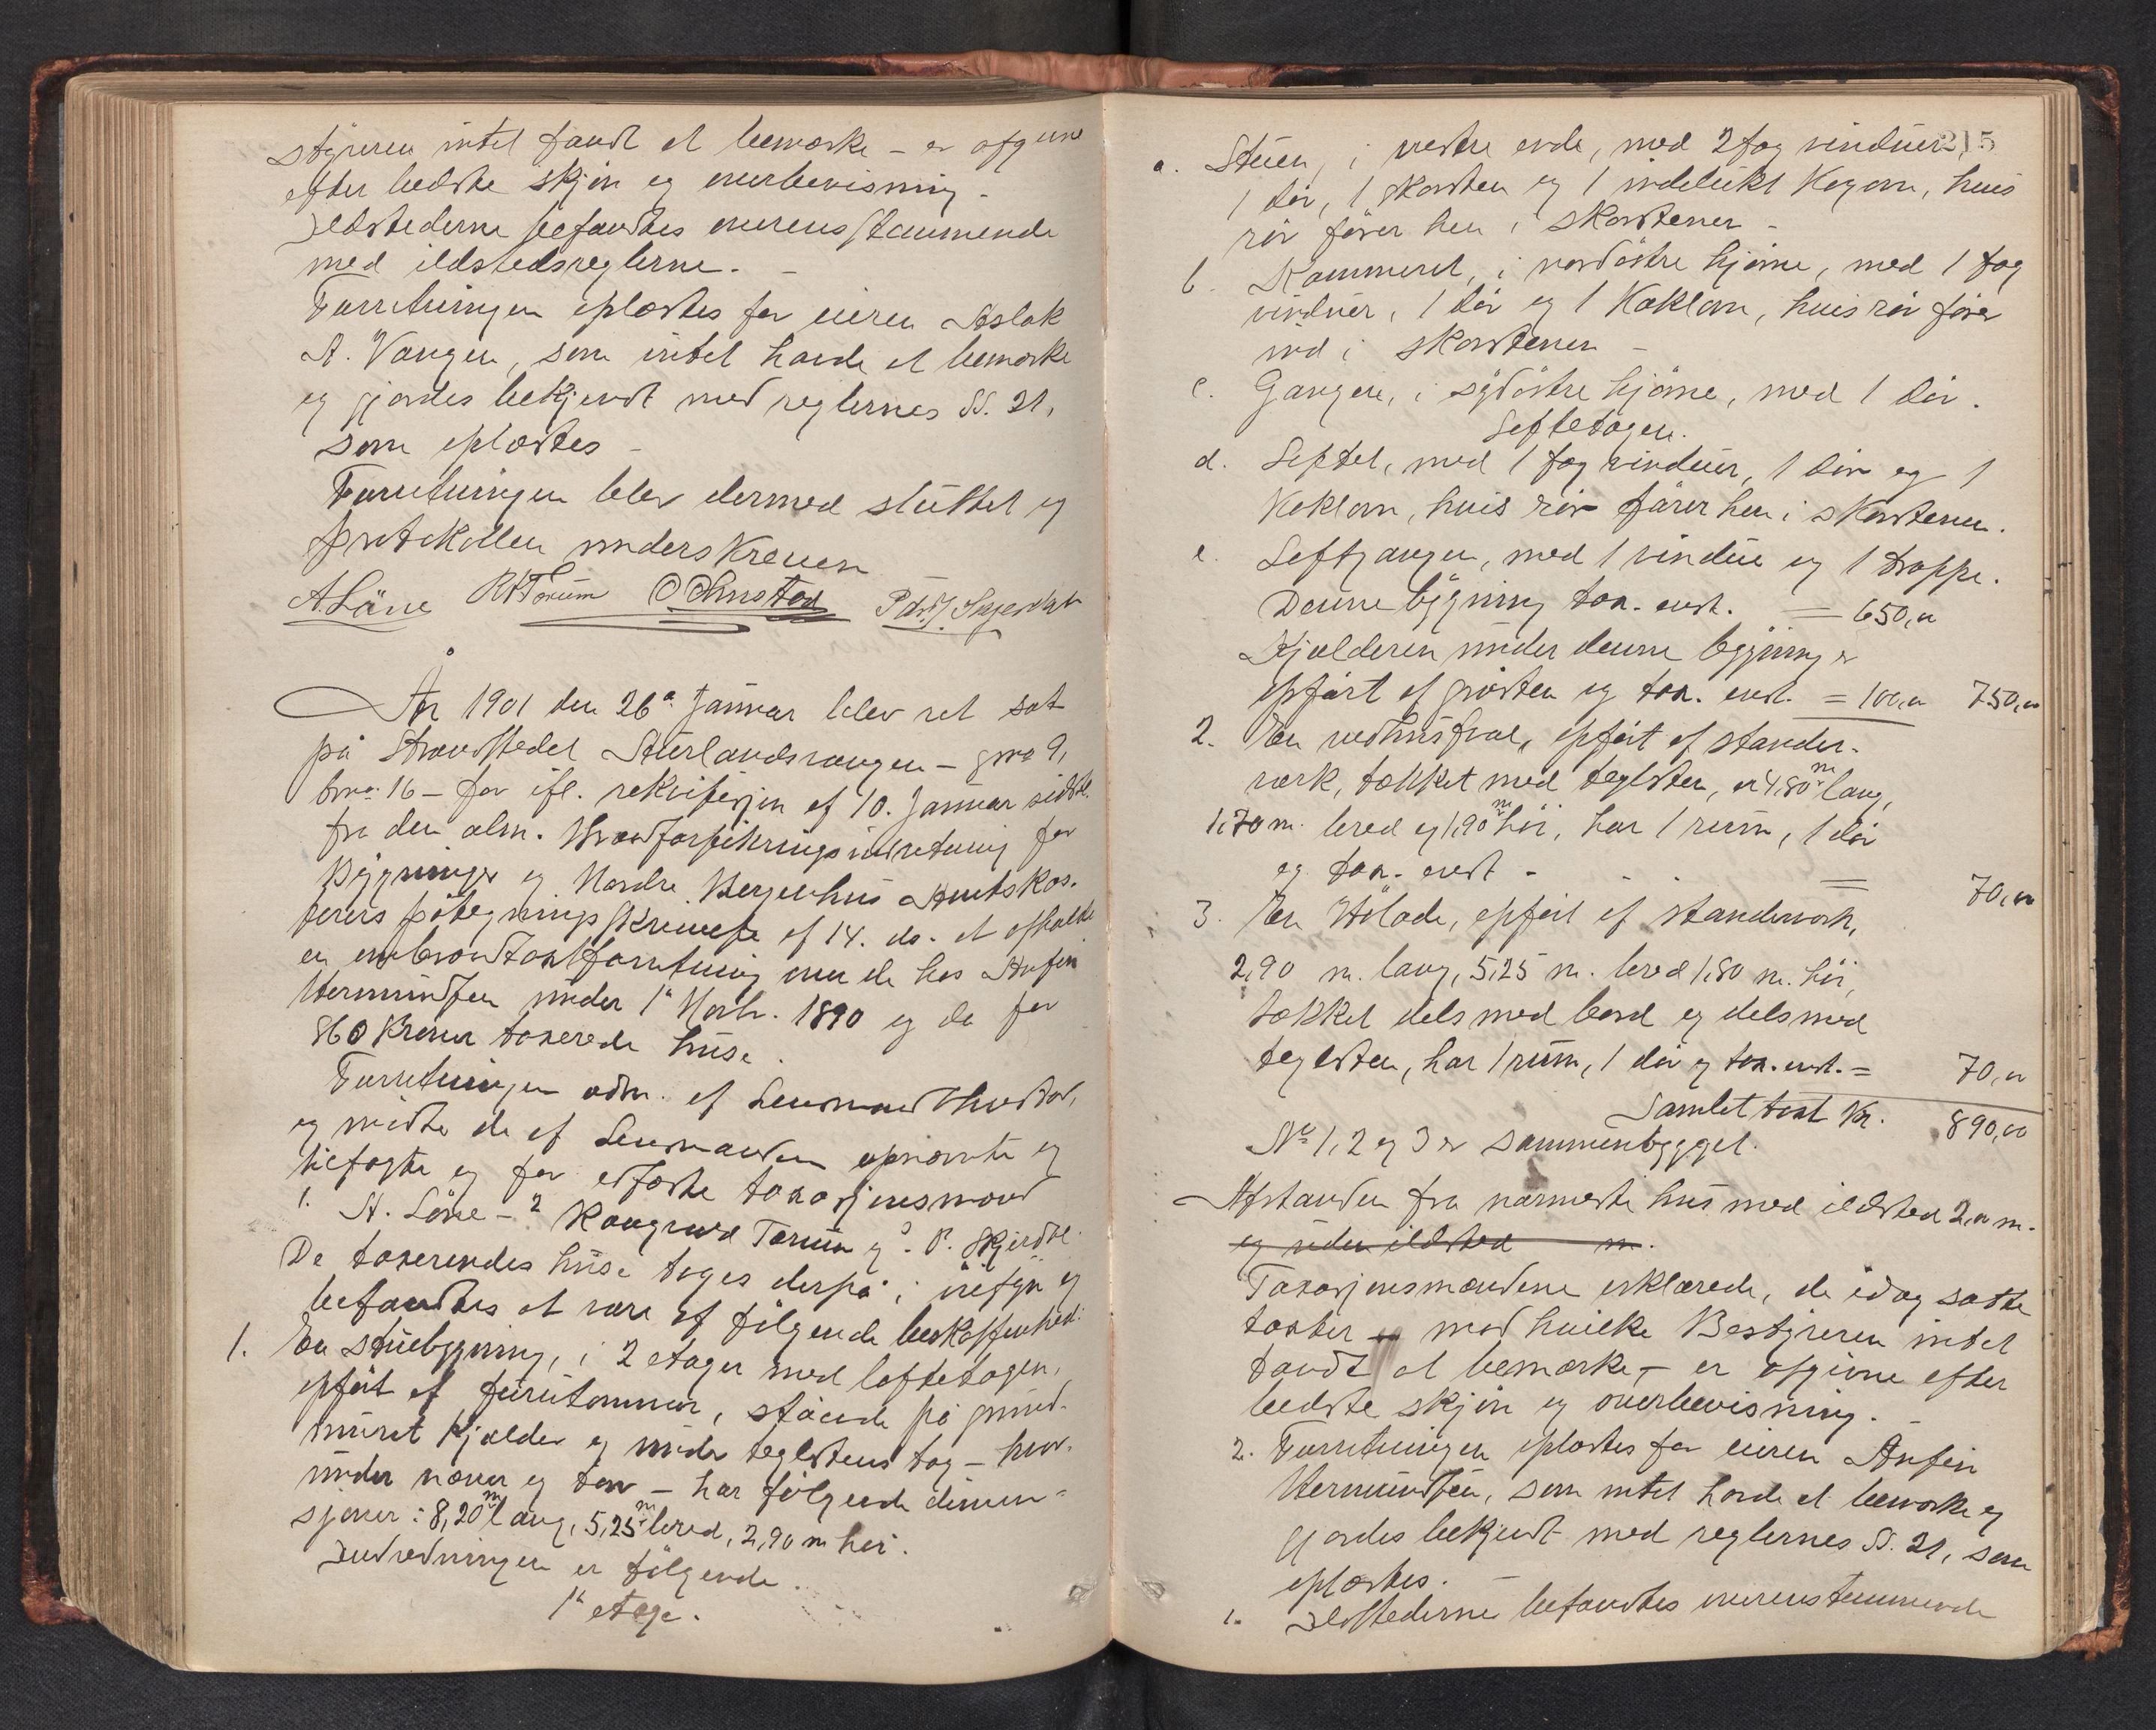 styreren intet fandt at bemærke – er afgivne
efter bedste skjøn og overbevisning –
Ildstederne befandtes overensstemmende
med ildstedsreglerne. –
Forretningen oplæstes for eieren Aslak
A. Vangen, som intet havde at bemærke
og gjordes bekjendt med reglernes §§. 21,
som oplæstes –
Forretningen blev dermed sluttet og
protokollen underskreven
ALäne RKTorüm OOhnstad
År 1901 den 26de Januar blev ret sat
på Strandstedet Aurlandsvangen – gno 9,
bno. 16 – for ifl. rekvisisjon af 10. Januar sidstl.
fra den alm. Brandforsikringsindretning for
Bygninger og Nordre Bergenhus Amtskas-
serers påtegningsskrivelse af 14. ds. at afholde
en ombrandtaxtforretning over de hos Anfin
Vermundsen under 1te Novbr. 1890 og da for
860 kroner taxerede huse.
Forretningen adm. af Lensmand Ohnstad,
og mødte de af Lensmanden opnævnte og
tilsagte og før edfæste taxasjonsmænd
1. A. Läne – 2 Kongsvard Torum og 3. P. Skjerdal.
De taxerendes huse toges derpå i øiesyn og
befandtes at være af følgende beskaffenhed:
1. En stuebygning, i 2 etager med loftetagen,
opført af furutømmer, stående på grund-
muret kjelder og under teglstens tag – hvor-
under – har følgende dimen-
sjoner: 8,20 m lang, 5,25 m bred, 2,90 m høi.
Indredningen er følgende.
1te etage.
215
a. Stuen, i vestre ende, med 2 fag vinduer,
1 dør, 1 skorsten og 1 indelukt Kogovn, hvis
rør fører hen i skorstenen –
b. Kammeret, i nordøstre hjørne, med 1 fag
vinduer, 1 dør og 1 Kaklovn, hvis rør fører
ind i skorstenen –
c. Gangen, i sydøstre hjørne, med 1 dør.
Loftetagen.
d. Loftet, med 1 fag vinduer, 1 dør og 1
Kaklovn, hvis rør fører hen i skorstenen.
e. Loftgangen, med 1 vindue og 1 trappe.
Denne bygning tax. enst. = 650,00
Kjelderen under denne bygning er
opført af gråsten og tax. enst. = 100,00 750,00
2. En vedhussval, opført af stander-
værk, tækket med teglsten, er 4,80 m lang,
1,70 m. bred og 1,90 m høi, har 1 rum, 1 dør
og tax. enst – = 70,00
3. En Hølade, opført af standerværk,
2,90 m. lang, 5,25 m. bred 1,80 m. høi,
tækket dels med bord og dels med
teglsten, har 1 rum, 1 dør og tax. enst. = 70,00
Samlet taxt Kr. 890,00
No 1, 2 og 3 er sammenbygget.
Afstanden fra nærmeste hus med ildsted 2,00 m.
og uden ildsted m.
Taxasjonsmændene erklærede, de idag satte
taxter – mod hvilke Bestyreren intet
fandt at bemærke, – er afgivne efter
bedste skjøn og overbevisning. –
2. Forretningen oplæstes for eieren Anfin
Vermundsen, som intet havde at bemærke og
gjordes bekjendt med reglernes §§. 21, som
oplæstes. –
1. Ildstederne befandtes overenstemmende